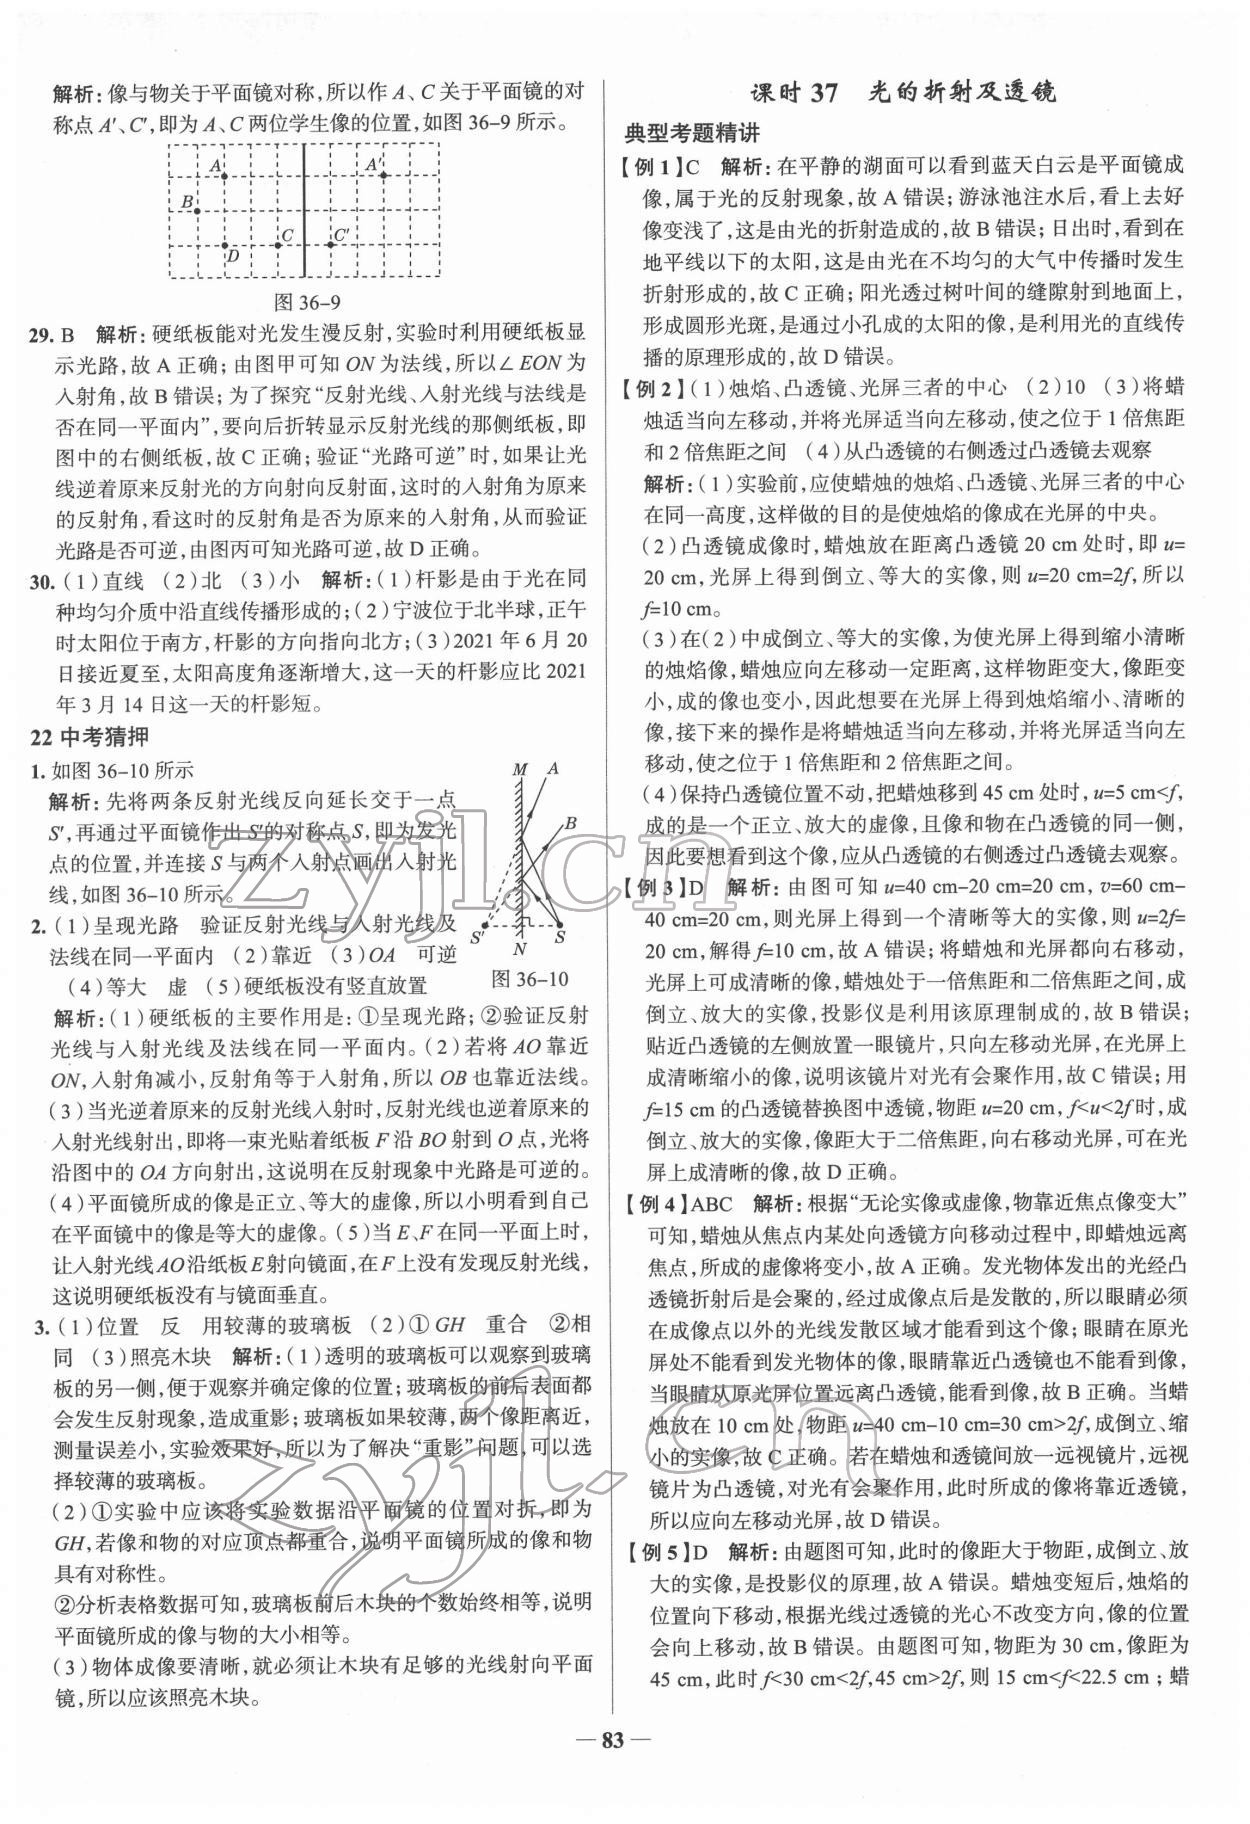 解析:像与物关于平面镜对称,所以作 A、C 关于平面镜的对
称点 A′、C′,即为 A、C 两位学生像的位置,如图 36-9 所示。
A A′
B
C C′
D
图 36-9
29. B 解析:硬纸板能对光发生漫反射,实验时利用硬纸板显
示光路,故 A 正确;由图甲可知 ON 为法线,所以∠EON 为
入射角,故 B 错误;为了探究“反射光线、入射光线与法线是
否在同一平面内”,要向后折转显示反射光线的那侧纸板,即
图中的右侧纸板,故 C 正确;验证“光路可逆”时,如果让光
线逆着原来反射光的方向射向反射面,这时的入射角为原来
的反射角,看这时的反射角是否为原来的入射角,从而验证
光路是否可逆,由图丙可知光路可逆,故 D 正确。
30. (1)直线 (2)北 (3)小 解析:(1)杆影是由于光在同
种均匀介质中沿直线传播形成的;(2)宁波位于北半球,正午
时太阳位于南方,杆影的方向指向北方;(3)2021 年 6 月 20
日接近夏至,太阳高度角逐渐增大,这一天的杆影应比 2021
年 3 月 14 日这一天的杆影短。
22 中考猜押
1. 如图 36-10 所示
解析:先将两条反射光线反向延长交于一点
S′,再通过平面镜作出 S′的对称点 S,即为发光
点的位置,并连接 S 与两个入射点画出入射光
线,如图 36-10 所示。
M A
B
S′ N S
图 36-10
2. (1)呈现光路 验证反射光线与入射光线及
法线在同一平面内 (2)靠近 (3)OA 可逆
(4)等大 虚 (5)硬纸板没有竖直放置
解析:(1)硬纸板的主要作用是:①呈现光路;②验证反射
光线与入射光线及法线在同一平面内。(2)若将 AO 靠近
ON,入射角减小,反射角等于入射角,所以 OB 也靠近法线。
(3)当光逆着原来的反射光线入射时,反射光线也逆着原来的
入射光线射出,即将一束光贴着纸板 F 沿 BO 射到 O 点,光将
沿图中的 OA 方向射出,这说明在反射现象中光路是可逆的。
(4)平面镜所成的像是正立、等大的虚像,所以小明看到自己
在平面镜中的像是等大的虚像。(5)当 E、F 在同一平面上时,
让入射光线 AO 沿纸板 E 射向镜面,在 F 上没有发现反射光线,
这说明硬纸板没有与镜面垂直。
3. (1)位置 反 用较薄的玻璃板 (2)①GH 重合 ②相
同 (3)照亮木块 解析:(1)透明的玻璃板可以观察到玻璃
板的另一侧,便于观察并确定像的位置;玻璃板的前后表面都
会发生反射现象,造成重影;玻璃板如果较薄,两个像距离近,
测量误差小,实验效果好,所以为了解决“重影”问题,可以选
择较薄的玻璃板。
(2)①实验中应该将实验数据沿平面镜的位置对折,即为
GH,若像和物的对应顶点都重合,说明平面镜所成的像和物
具有对称性。
②分析表格数据可知,玻璃板前后木块的个数始终相等,说明
平面镜所成的像与物的大小相等。
(3)物体成像要清晰,就必须让木块有足够的光线射向平面
镜,所以应该照亮木块。
课时 37 光的折射及透镜
典型考题精讲
【例 1】C 解析:在平静的湖面可以看到蓝天白云是平面镜成
像,属于光的反射现象,故 A 错误;游泳池注水后,看上去好
像变浅了,这是由光的折射造成的,故 B 错误;日出时,看到在
地平线以下的太阳,这是由光在不均匀的大气中传播时发生
折射形成的,故 C 正确;阳光透过树叶间的缝隙射到地面上,
形成圆形光斑,是通过小孔成的太阳的像,是利用光的直线传
播的原理形成的,故 D 错误。
【例 2】(1)烛焰、凸透镜、光屏三者的中心 (2)10 (3)将蜡
烛适当向左移动,并将光屏适当向左移动,使之位于 1 倍焦距
和 2 倍焦距之间 (4)从凸透镜的右侧透过凸透镜去观察
解析:(1)实验前,应使蜡烛的烛焰、凸透镜、光屏三者的中心
在同一高度,这样做的目的是使烛焰的像成在光屏的中央。
(2)凸透镜成像时,蜡烛放在距离凸透镜 20 cm 处时,即 u=
20 cm,光屏上得到倒立、等大的实像,则 u=20 cm=2f,所以
f=10 cm。
(3)在(2)中成倒立、等大的实像,为使光屏上得到缩小清晰
的烛焰像,蜡烛应向左移动一定距离,这样物距变大,像距变
小,成的像也变小,因此想要在光屏上得到烛焰缩小、清晰的
像,接下来的操作是将蜡烛适当向左移动,并将光屏适当向左
移动,使之位于 1 倍焦距和 2 倍焦距之间。
(4)保持凸透镜位置不动,把蜡烛移到 45 cm 处时,u=5 cm<f,
成的是一个正立、放大的虚像,且像和物在凸透镜的同一侧,
因此要想看到这个像,应从凸透镜的右侧透过凸透镜去观察。
【例 3】D 解析:由图可知 u=40 cm-20 cm=20 cm, v=60 cm-
40 cm=20 cm,则光屏上得到一个清晰等大的实像,则 u=2f=
20 cm,解得 f=10 cm,故 A 错误;将蜡烛和光屏都向右移动,
光屏上可成清晰的像,蜡烛处于一倍焦距和二倍焦距之间,成
倒立、放大的实像,投影仪是利用该原理制成的,故 B 错误;
贴近凸透镜的左侧放置一眼镜片,只向左移动光屏,在光屏上
成清晰缩小的像,说明该镜片对光有会聚作用,故 C 错误;用
f=15 cm 的凸透镜替换图中透镜,物距 u=20 cm,f<u<2f 时,成
倒立、放大的实像,像距大于二倍焦距,向右移动光屏,可在光
屏上成清晰的像,故 D 正确。
【例 4】ABC 解析:根据“无论实像或虚像,物靠近焦点像变大”
可知,蜡烛从焦点内某处向透镜方向移动过程中,即蜡烛远离
焦点,所成的虚像将变小,故 A 正确。发光物体发出的光经凸
透镜折射后是会聚的,经过成像点后是发散的,所以眼睛必须
在成像点以外的光线发散区域才能看到这个像;眼睛在原光
屏处不能看到发光物体的像,眼睛靠近凸透镜也不能看到像,
当眼睛从原光屏位置远离凸透镜,能看到像,故 B 正确。当蜡
烛放在 10 cm 处,物距 u=40 cm-10 cm=30 cm>2f,成倒立、缩
小的实像,故 C 正确。若在蜡烛和透镜间放一远视镜片,远视
镜片为凸透镜,对光有会聚作用,此时所成的像将靠近透镜,
所以应向左移动光屏,故 D 错误。
【例 5】D 解析:由题图可知,此时的像距大于物距,成倒立、放
大的实像,是投影仪的原理,故 A 错误。蜡烛变短后,烛焰的
位置向下移动,根据光线过透镜的光心不改变方向,像的位置
会向上移动,故 B 错误。由题图可知,物距为 30 cm,像距为
45 cm,此时 f<30 cm<2f,45 cm>2f,则 15 cm<f<22.5 cm;蜡
— 83 —
zyjl.cn
zyjl.cn